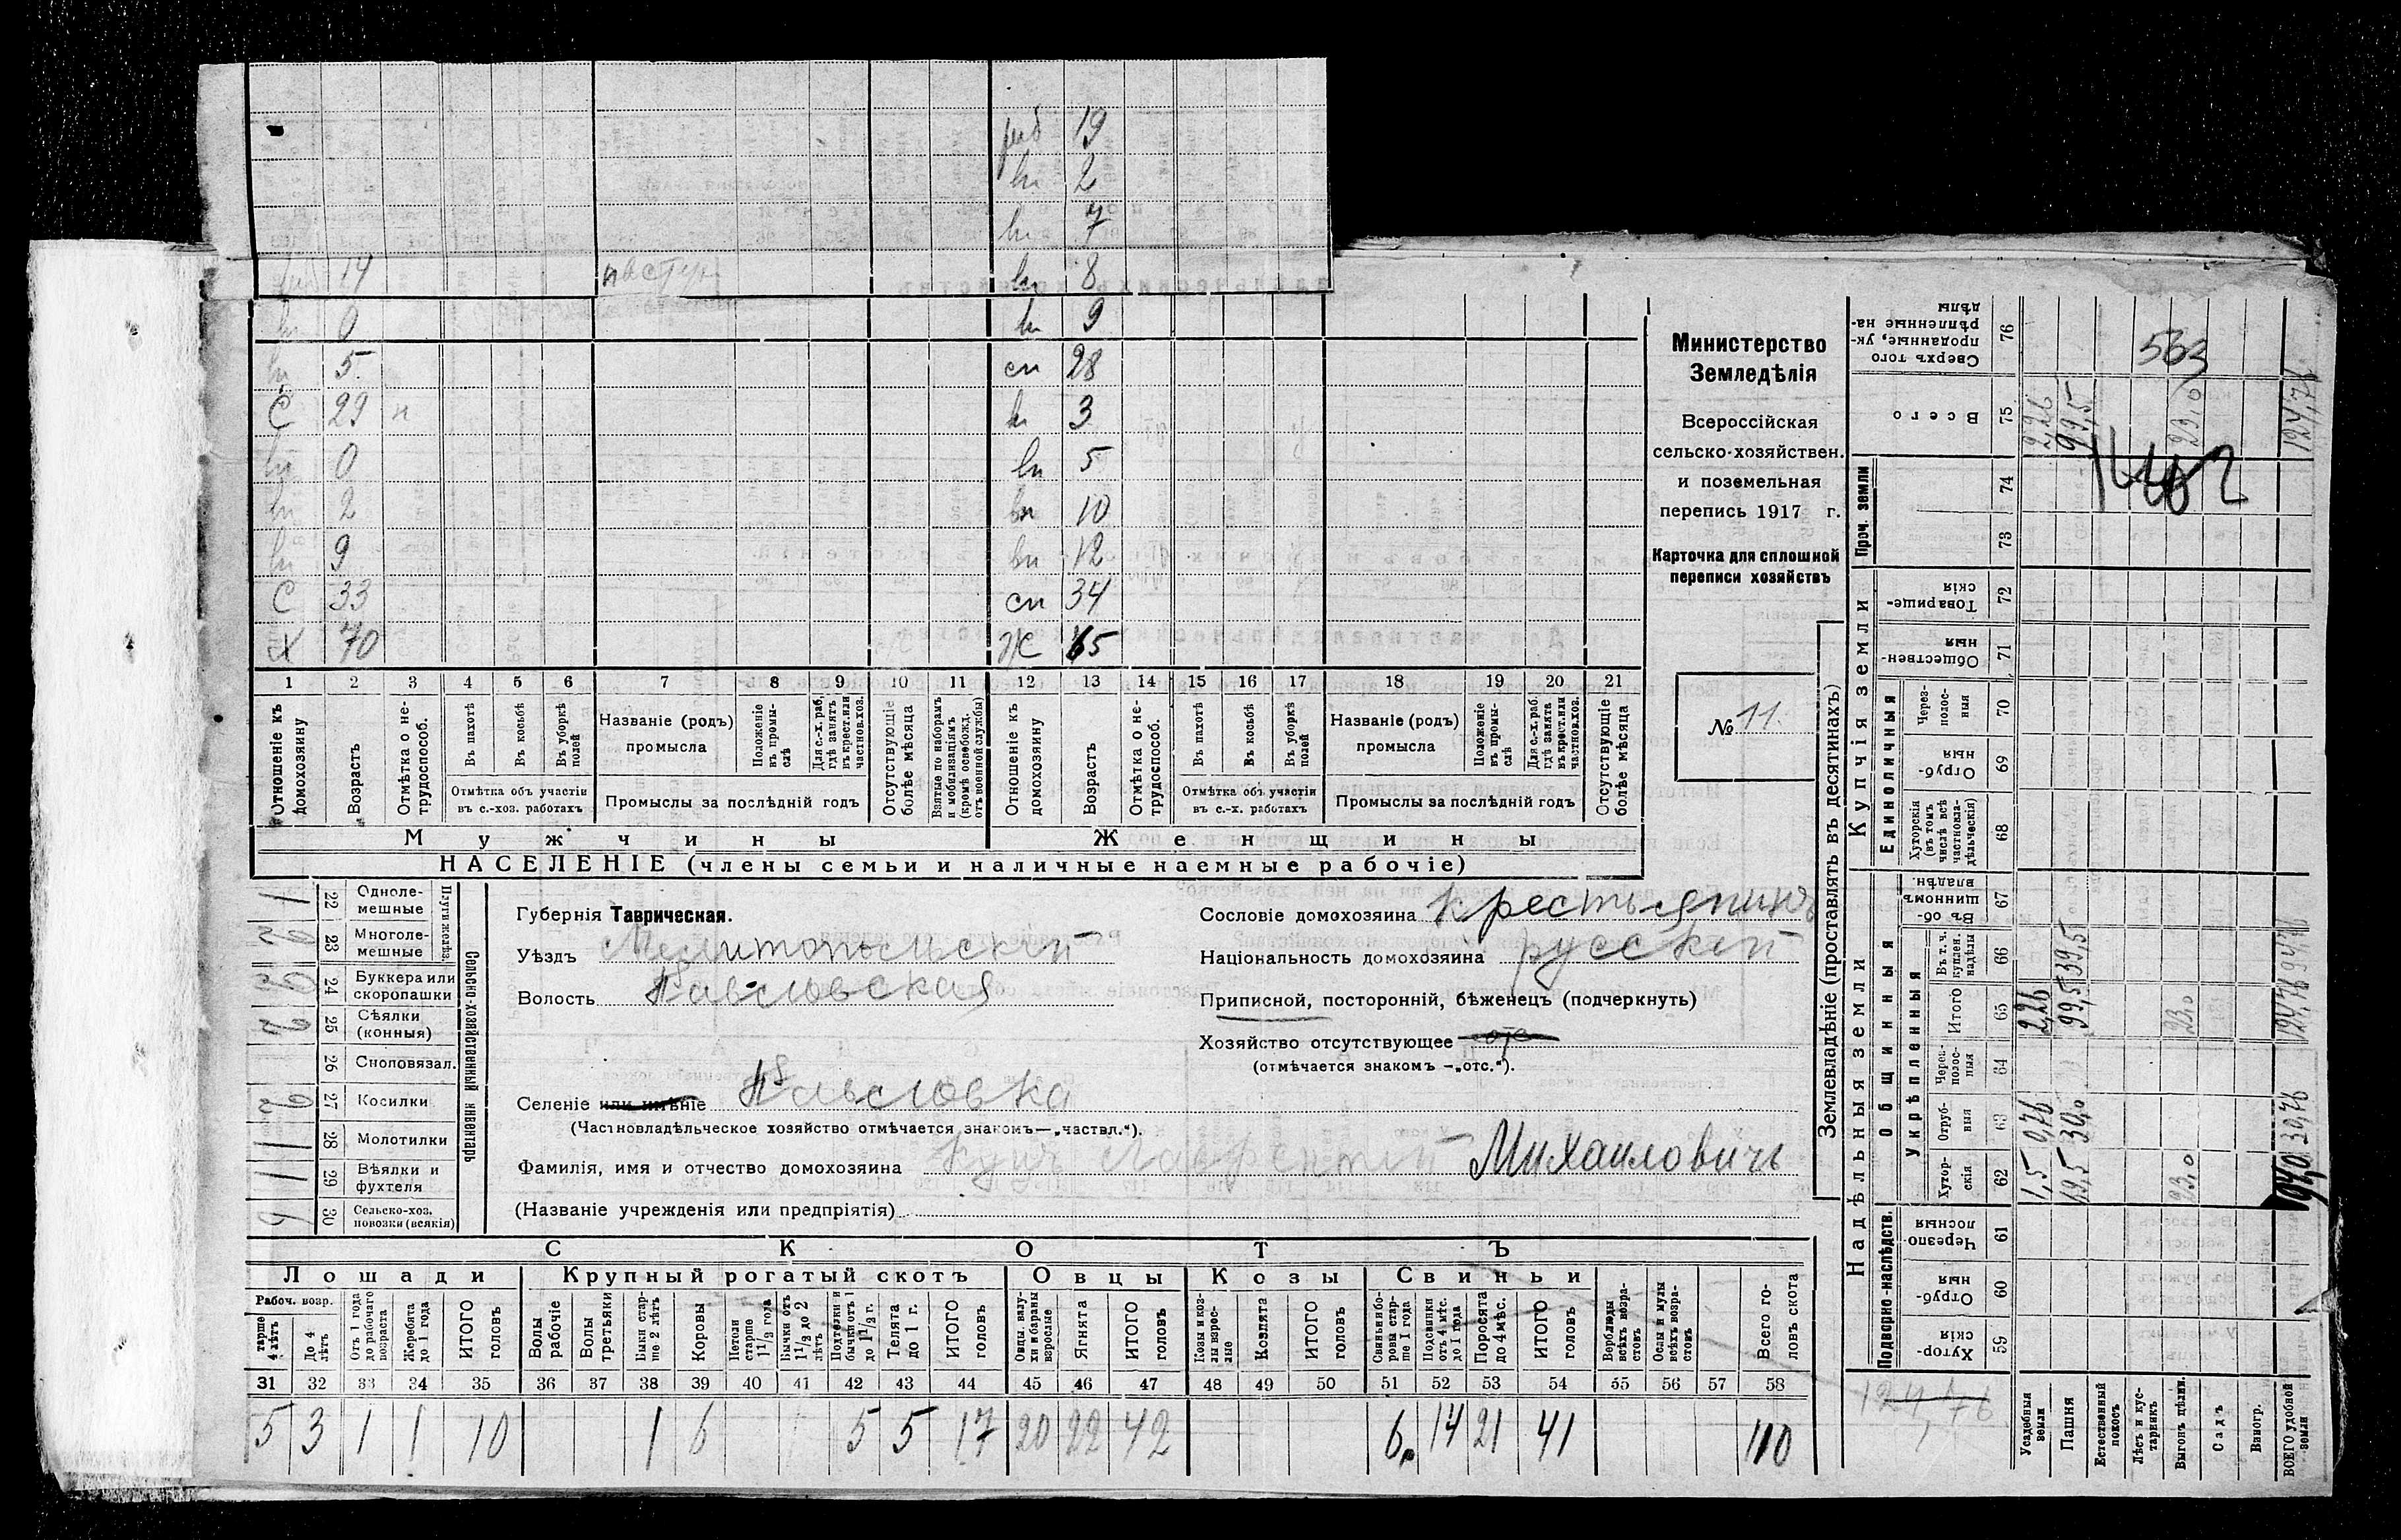 19
2
7
14 8
0 9
5 сп 28
С 29 н 3
0 5
2 10
9 12
С 33 сп 34
Х 70 Ж 65
1 2 3 4 5 6 7 8 9 10 11 12 13 14 15 16 17 18 19 20 21
Отношеніе къ домохозяину
Возрастъ
Отмѣтка о нетрудоспособ.
Въ пахотѣ
Въ косьбѣ
Въ уборкѣ полей
Отмѣтка объ участіи въ с.-хоз. работахъ
Названіе (родъ) промысла
Положеніе въ промыслѣ
Для с.-х. раб. гдѣ занятъ въ крест. или частнов. хоз.
Промыслы за послѣдній годъ
Отсутствующіе болѣе мѣсяца
Взятые по наборамъ и мобилизаціямъ (кромѣ освобожд. отъ военной службы)
Отношеніе къ домохозяину
Возрастъ
Отмѣтка о нетрудоспособ.
Въ пахотѣ
Въ косьбѣ
Въ уборкѣ полей
Отмѣтка объ участіи въ с.-х. работахъ
Названіе (родъ) промысла
Положеніе въ промыслѣ
Для с.-х. раб. гдѣ занята въ крест. или частнов. хоз.
Промыслы за послѣдній годъ
Отсутствующіе болѣе мѣсяца
Мужчины Женщины
НАСЕЛЕНІЕ (члены семьи и наличные наемные рабочіе)
Министерство
Земледѣлія
Всероссійская
сельско-хозяйствен.
и поземельная
перепись 1917 г.
Карточка для сплошной
переписи хозяйствъ
№ 11.
Сельско-хозяйственный инвентарь
Плуги желѣз.
22 Одноле-мешные 1
23 Многоле-мешные 2
24 Буккера или скоропашки
25 Сѣялки (конныя) 2
26 Сноповязал.
27 Косилки 2
28 Молотилки 1
29 Вѣялки и фухтеля 1
30 Сельско-хоз. повозки (всякія) 6
Губернія Таврическая.
Уѣздъ Мелитопольскій
Волость Павловская
Селеніе или имѣніе Павловка
(Частновладѣльческое хозяйство отмѣчается знакомъ—„частвл.“).
Фамилія, имя и отчество домохозяина Лаврентій Михаиловичъ
(Названіе учрежденія или предпріятія)
Сословіе домохозяина крестьянинъ
Національность домохозяина русскій
Приписной, посторонній, бѣженецъ (подчеркнуть)
Хозяйство отсутствующее отс
(отмѣчается знакомъ –„отс.“).
СКОТЪ
Лошади Крупный рогатый скотъ Овцы Козы Свиньи
Рабоч. возр.
тарше 4 лѣтъ
До 4 лѣтъ
Отъ 1 года до рабочаго возраста
Жеребята до 1 года
ИТОГО головъ
Волы рабочіе
Волы третьяки
Быки старше 2 лѣтъ
Коровы
Нетели старше 1½ года
Бычки отъ 1½ до 2 лѣтъ
Подтелки и бычки отъ 1 до 1½ г.
Телята до 1 г.
ИТОГО головъ
Овцы, валухи и бараны взрослые
Ягнята
ИТОГО головъ
Козы и козлы взрослые
Козлята
ИТОГО головъ
Свиньи и боровы старше 1 года
Подсвинки отъ 4 мѣс. до 1 года
Поросята до 4 мѣс.
ИТОГО головъ
Верблюды всѣхъ возрастовъ
Ослы и мулы всѣхъ возрастовъ
Всего головъ скота
31 32 33 34 35 36 37 38 39 40 41 42 43 44 45 46 47 48 49 50 51 52 53 54 55 56 57 58
5 3 1 1 10 1 6 5 5 17 20 22 42 6 14 21 41 110
Землевладѣніе (проставлять въ десятинахъ)
Надѣльныя земли Купчія земли Проч. земли
Подворно-наслѣдств. Общинныя Единоличныя
Укрѣпленныя
Хуторскія 59
Отрубныя 60
Черезполосныя 61
Хуторскія 62
Отрубныя 63
Черезполосныя 64
Итого 65
Въ т. ч. куплен. надѣлы 66
Въ общинномъ владѣн. 67
Хуторскія (въ томъ числѣ всѣ частновладѣльческія) 68
Отрубныя 69
Черезполосныя 70
Общественныя 71
Товарищескія 72
73
74
Всего 75
Сверхъ того проданные, укрѣпленные надѣлы 76
Усадебныя земли 1,5 0,76 2,26 2,26
Пашня 69,5 30,0 99,5 39,5 99,5
Естественный покосъ
Лѣсъ и кустарникъ
Выгонъ цѣлин. 23,0 23,0 23,0
Садъ
Виногр.
ВСЕГО удобной земли 94,0 30,76 124,76 94,76 124,76
124,76
563